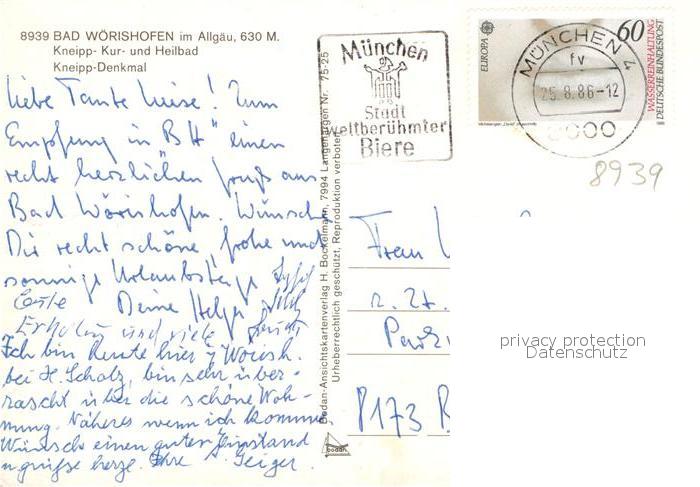 8939 BAD WÖRISHOFEN im Allgäu, 630 M.
Kneipp- Kur- und Heilbad
Kneipp-Denkmal
Liebe Tante Luise! Zum
Empfang in BH" einen
recht herzlichen Gruß aus
Bad Wörishofen. Wünsche
Dir recht schöne frohe und
sonnige Urlaubstage
Gute Deine Helga
Erholung und viele
Ich bin heute hier
bei H. Scholz, bin sehr über-
rascht über die schöne Woh-
nung. Näheres wenn ich komme.
Wünsch einen guten Einstand
herzl. Ihre Geiger.
Bodan-Ansichtskartenverlag H. Bockelmann, 7994 Langenargen Nr. 75-25
Urheberrechtlich geschützt, Reproduktion verboten
bodan
München
Stadt
weltberühmter
Biere
EUROPA
60
WASSERREINHALTUNG
DEUTSCHE BUNDESPOST
MÜNCHEN 4
fv
25.8.86-12
8000
8939
Frau
z. Zt.
8173 B
privacy protection
Datenschutz